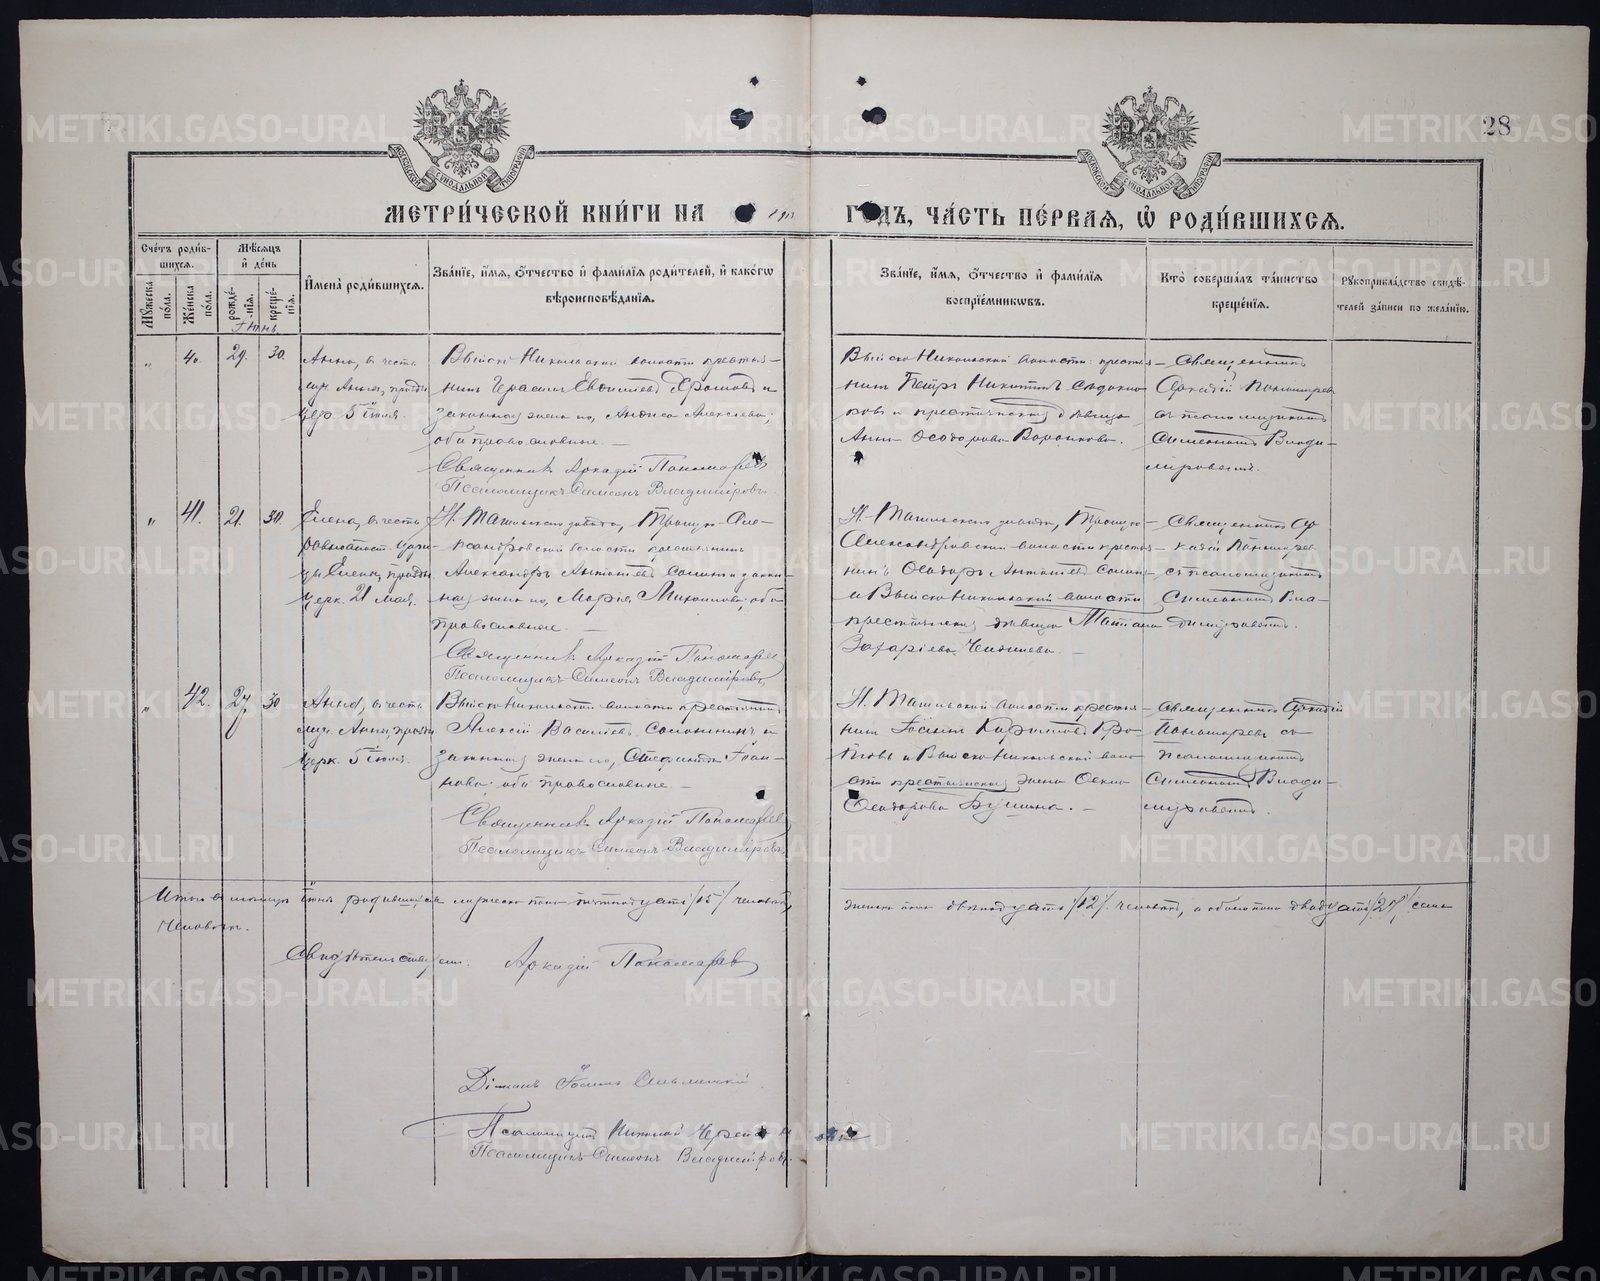 28
МОСКОВСКОЙ СѴНОДАЛЬНОЙ ТИПОГРАФІИ
МОСКОВСКОЙ СѴНОДАЛЬНОЙ ТИПОГРАФІИ
МЕТРИ́ЧЕСКОЙ КНИ́ГИ НА
ГО́ДЪ, ЧА́СТЬ ПЕ́РВАЯ, Ѽ РОДИ́ВШИХСЯ.
Сче́тъ роди́в-
шихся.
Мѣ́сяцъ
и҆ де́нь
Мꙋ́жеска по́ла.
Же́нска по́ла.
рожде́нїя.
креще́нїя.
И҆мена̀ роди́вшихся.
Зва́нїе, и҆́мя, ѻ҆́тчество и҆ фами́лїя роди́телей, и҆ како́гѡ
вѣроисповѣ́данїя.
Зва́нїе, и҆́мя, ѻ҆́тчество и҆ фами́лїя
воспрїе́мникѡвъ.
Кто̀ соверша́лъ та́инство
креще́нїя.
Рꙋкоприкла́дство свидѣ́-
телей за́писи по жела́нїю.
Іюнь
„ 40. 29. 30.
Анна, в честь
муч. Анны, празд.
цер. 5 Іюля.
Выйско-Никольской волости крестья-
нинъ Герасим Евдокимов и
законная жена его, Алексѣева,
оба православные. —
Священник Аркадій Пономарев
Псаломщикъ Симеонъ Владиміровъ.
Выйско Никольской волости крестья-
нинъ Петръ Никитинъ
и крестьянская дѣвица
Анна Ѳеодорова Воронкова.
Священникъ
Аркадій Пономарев
съ псаломщикомъ
Симеономъ Влади-
міровымъ.
„ 41. 21. 30.
Елена, в честь
равноапост. цари-
цы Елены, празд.
церк. 21 мая.
Н.-Тагильского завода, Троицко-Але-
ксандровской волости крестьянинъ
Александръ и закон-
ная жена его, Марія Михаилова, оба
православные. —
Священник Аркадій Пономарев
Псаломщикъ Симеонъ Владиміровъ.
Н.-Тагильского завода, Троицко-
Александровской волости крестья-
нинъ Ѳеодоръ
и Выйско-Никольской волости
крестьянская дѣвица Татіана
Захаріева
Священникъ Ар-
кадій Пономарев
съ псаломщикомъ
Симеономъ Вла-
диміровымъ.
„ 42. 27. 30
Анна, в честь
муч. Анны, празд.
церк. 5 Іюля.
Выйско-Никольской волости крестьянинъ
Алексій Василіевъ и
законная жена его, Стефанида Іоан-
нова, оба православные. —
Священник Аркадій Пономарев
Псаломщикъ Симеонъ Владиміровъ.
Н. Тагильской волости крестья-
нинъ Іоаннъ
и Выйско-Никольской воло-
сти крестьянская жена
Ѳеодорова —
Священникъ Аркадій
Пономаревъ съ
псаломщикомъ
Симеономъ Влади-
міровымъ.
Итого в мѣсяцѣ Іюнѣ родившихся мужеска пола пятнадцать /15/ человѣкъ,
женска пола двѣнадцать /12/ человѣкъ, а обоего пола двадцать /27/ семь
человѣкъ.
Свидѣтельствуемъ: Аркадій Пономарев
Діаконъ Іоаннъ
Псаломщикъ Николай
Псаломщикъ Симеонъ Владиміровъ.
METRIKI.GASO-URAL.RU